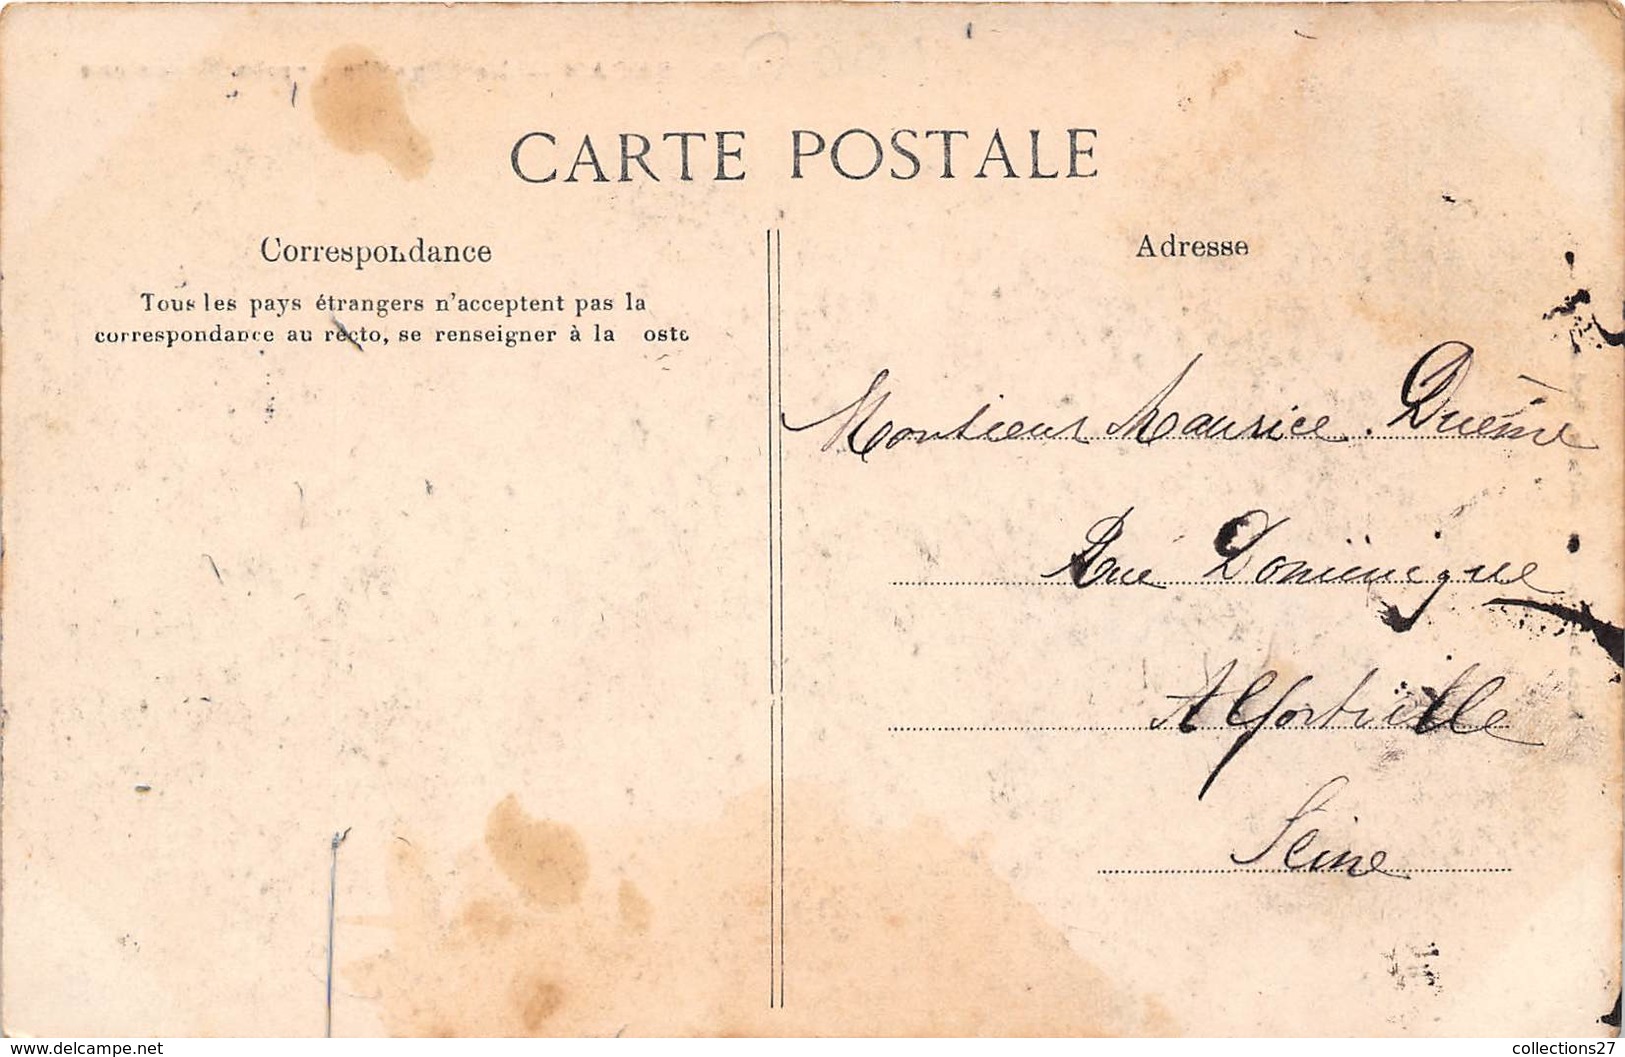 CARTE POSTALE
Correspondance
Tous les pays étrangers n'acceptent pas la
correspondance au recto, se renseigner à la oste
Adresse
Monsieur Maurice
Rue Dominique
Alfortville
Seine
www.delcampe.net
collections27